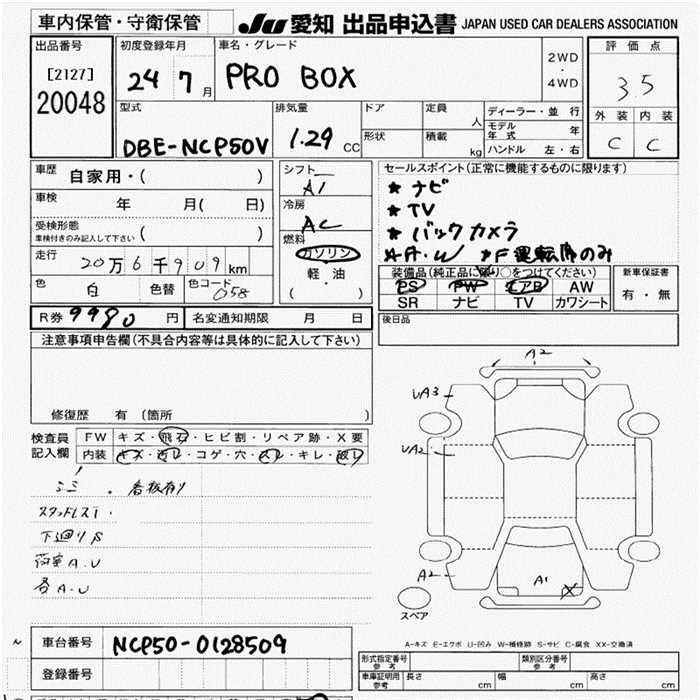 車内保管・守衛保管 JU 愛知 出品申込書 JAPAN USED CAR DEALERS ASSOCIATION
出品番号 初度登録年月 車名・グレード 2WD・4WD 評価点
[2127] 24 7月 PRO BOX 3.5
20048 型式 排気量 ドア 定員 人 ディーラー・並行 外装 内装
モデル年式 年
DBE-NCP50V 1.29 CC 形状 積載 kg ハンドル 左・右 C C
車歴 自家用・( ) シフト セールスポイント(正常に機能するものに限ります)
A1 ★ ナビ
車検 年 月( 日) 冷房 ★ TV
受検形態 AC ★ バックカメラ
車検付きのみ記入して下さい ( ) 燃料 ★ A・W ★F運転席のみ
走行 20万6千909km ガソリン 装備品(純正品に限り○をつけてください) 新車保証書
軽・油 PS PW エアB AW 有・無
色 白 色替 色コード 058 (・) SR ナビ TV カワシート
R券 9980 円 名変通知期限 月 日 後日品
注意事項申告欄(不具合内容等は具体的に記入して下さい)
A2
UA3
修復歴 有 (箇所 )
検査員記入欄 FW キズ・飛石・ヒビ割・リペア跡・X要
内装 キズ・汚レ・コゲ・穴・スレ・キレ・破レ
UA2
ミミ . 看板有り
スタッドレス1・
下廻りS
荷室A.U
各A.U
A2 A1 X
スペア
A-キズ E-エクボ U-凹み W-補修跡 S-サビ C-腐食 XX-交換済
車台番号 NCP50-0128509
形式指定番号 参考 類別区分番号 参考
登録番号 車庫証明用 参考 長さ cm 幅 cm 高さ cm